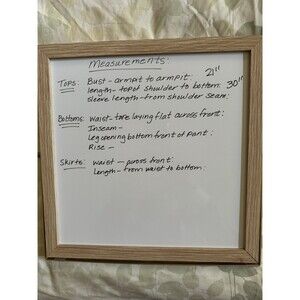 Measurements:
Tops: Bust - armpit to armpit: 21"
length - top of shoulder to bottom: 30"
sleeve length - from shoulder seam:
Bottoms: Waist - taken laying flat across front:
Inseam -
Leg opening bottom front of pant:
Rise -
Skirts: waist - across front:
Length - from waist to bottom: